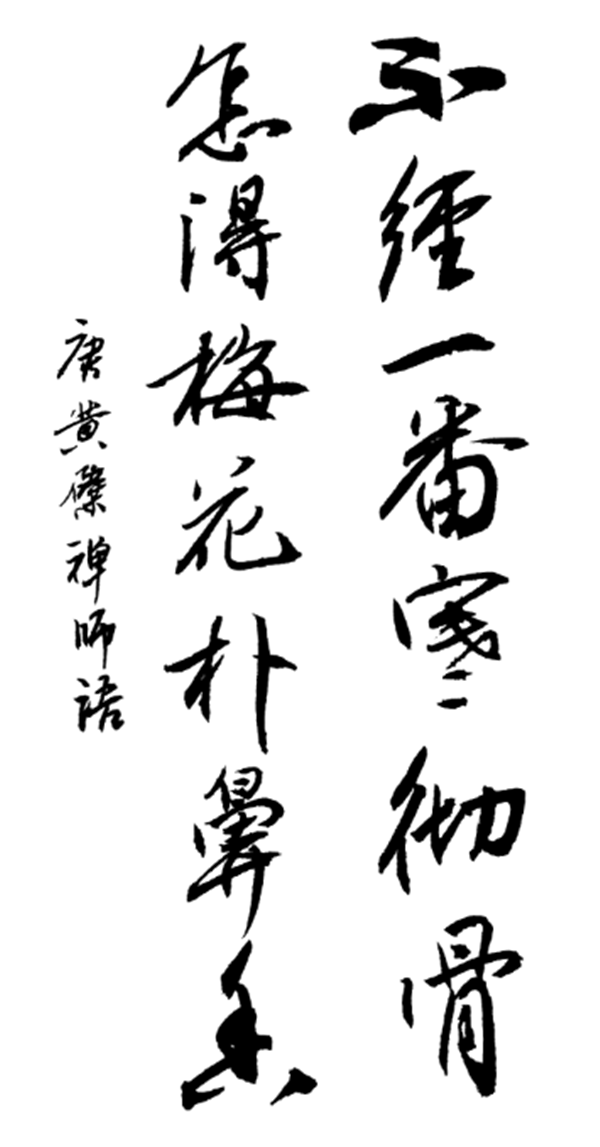 不經一番寒彻骨
怎得梅花朴鼻香
唐黄檗禅师语